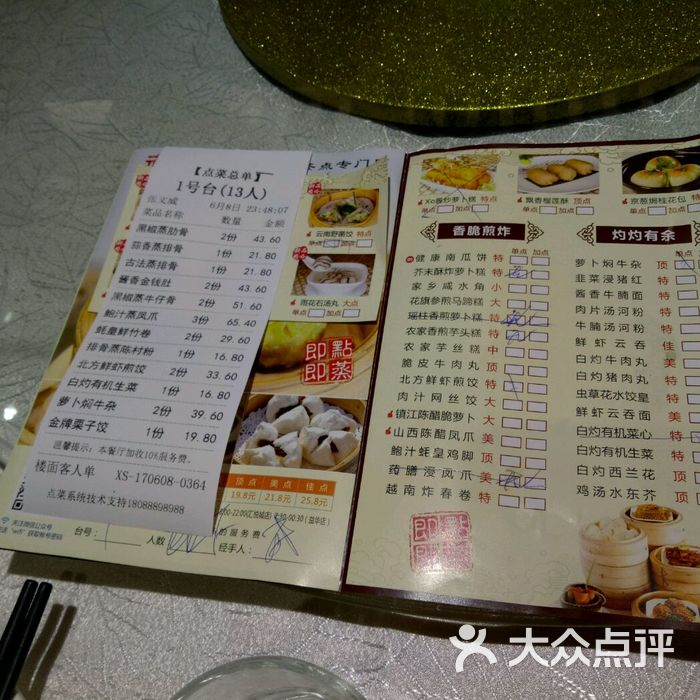 【点菜总单】
1号台(13人)
张义威 6月8日 23:48:07
菜品名称 数量 金额
黑椒蒸肋骨 2份 43.60
蒜香蒸排骨 1份 21.80
古法蒸排骨 1份 21.80
酱香金钱肚 2份 43.60
黑椒蒸牛仔骨 2份 51.60
鲍汁蒸凤爪 3份 65.40
蚝皇鲜竹卷 2份 29.60
排骨蒸陈村粉 1份 16.80
北方鲜虾煎饺 2份 33.60
白灼有机生菜 1份 16.80
萝卜焖牛杂 2份 39.60
金牌栗子饺 1份 19.80
温馨提示：本餐厅加收10%服务费。
楼面客人单 XS-170608-0364
点菜系统技术支持18088898988
点专门
云南野菌饺 特点
单点 加点
雨花石汤丸 大点
单点 加点
即點
即蒸
顶点 美点 佳点
19.8元 21.8元 25.8元
关注微信公众号
台号：
人数
的服务费
经手人：
Xo酱炒萝卜糕 特点
单点 加点
飘香榴莲酥 顶点
单点 加点
京葱焗桂花包 特点
单点 加点
香脆煎炸
单点 加点
健康南瓜饼 特
芥末酥炸萝卜糕 特
家乡咸水角 小
花旗参煎马蹄糕 大
瑶柱香煎萝卜糕 特
农家香煎芋头糕 特
农家芋丝糕 中
脆皮牛肉丸 顶
北方鲜虾煎饺 特
肉汁网丝饺 大
镇江陈醋脆萝卜 大
山西陈醋凤爪 美
鲍汁蚝皇鸡脚 顶
药膳浸凤爪 美
越南炸春卷 特
灼灼有余
单点 加点
萝卜焖牛杂 顶
韭菜浸猪红 特
酱香牛腩面 特
肉片汤河粉 特
牛腩汤河粉 特
鲜虾云吞 佳
白灼牛肉丸 美
白灼猪肉丸 美
虫草花水饺皇 特
鲜虾云吞面 美
白灼有机菜心 特
白灼有机生菜 特
白灼西兰花 特
鸡汤水东芥 顶
即點
即蒸
大众点评